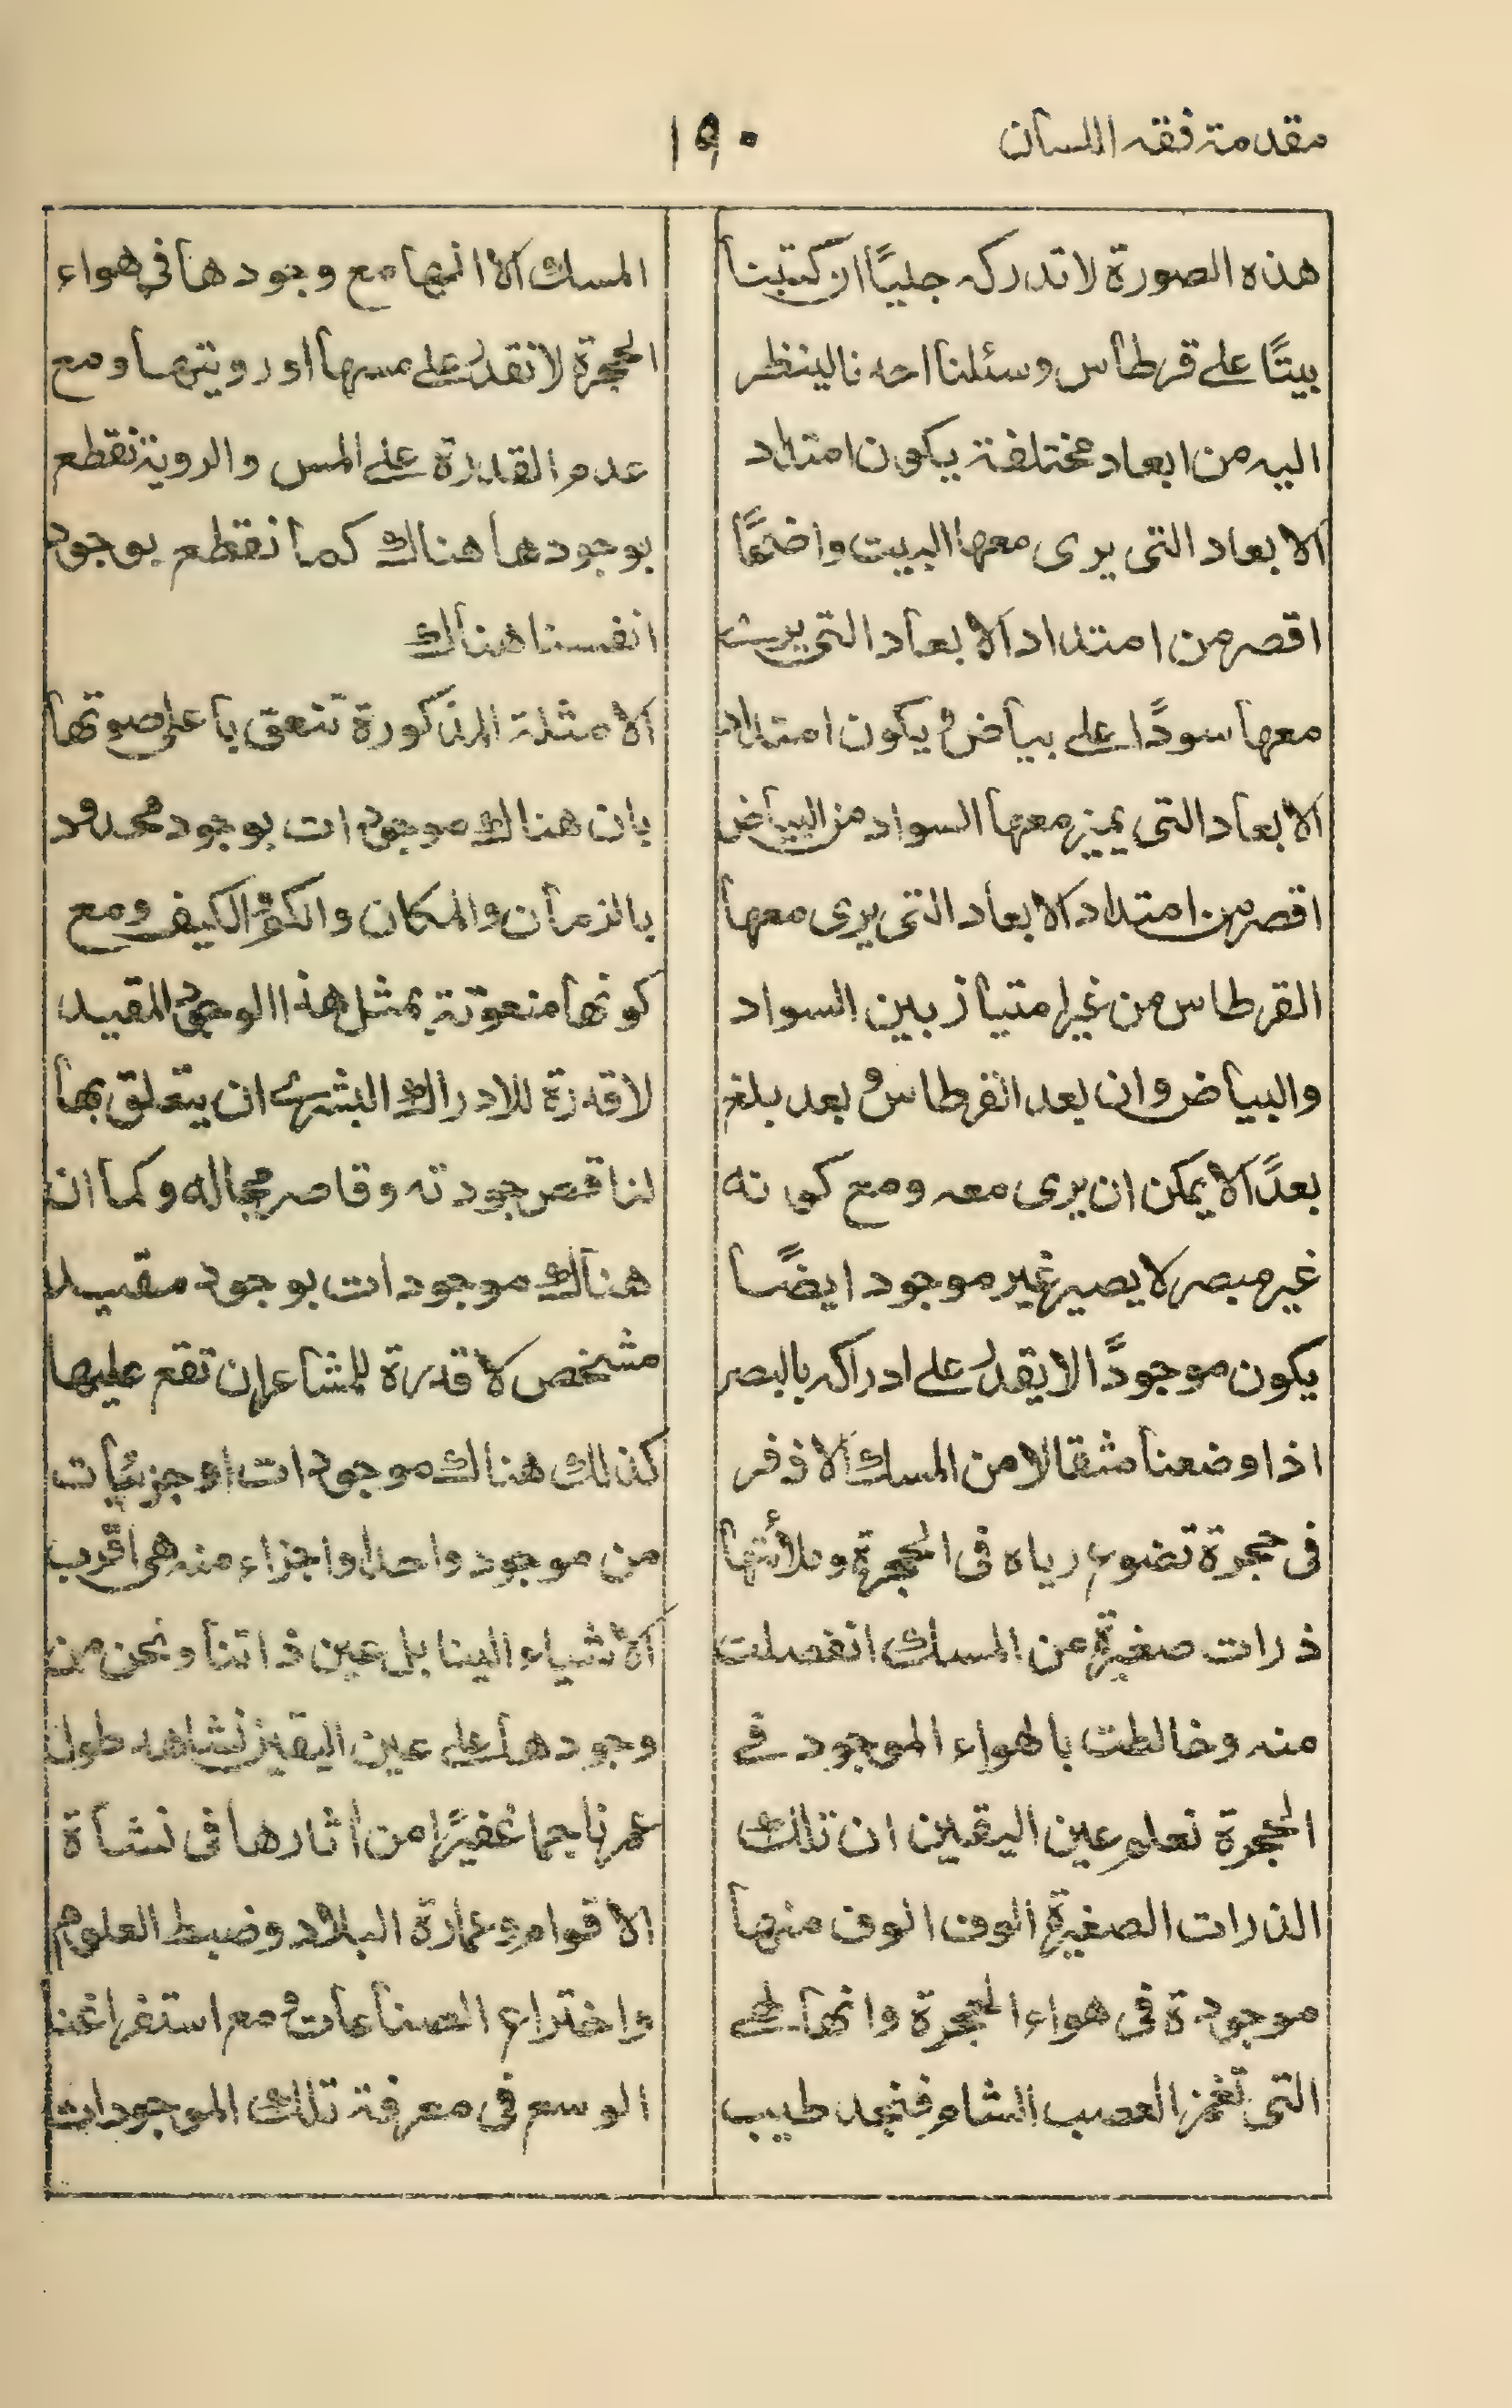 مقدمة فقه اللسان
١٩٠
هذه الصورة لا تدركه جليًا ان كتبنا
بيتًا على قرطاس وسئلنا احدنا لينظر
اليه من ابعاد مختلفة يكون امتداد
الابعاد التى يرى معها البيت واضحًا
اقصر من امتداد الابعاد التى يرى
معها سودًا على بياض و يكون امتداد
الابعاد التى يميز معها السواد من البياض
اقصر من امتداد الابعاد التى يرى معها
القرطاس من غير امتياز بين السواد
والبياض وان بعد القرطاس و بعد بلغ
بعدًا لا يمكن ان يرى معه ومع كونه
غير مبصر لا يصير غير موجود ايضًا
يكون موجودًا لا يقدر على ادراكه بالبصر
اذا وضعنا مثقالا من المسك الاذفر
فى حجرة تضوع رياه فى الحجرة وملأتها
ذرات صغيرة من المسك انفصلت
منه وخالطت بالهواء الموجود فى
الحجرة نعلم عين اليقين ان تلك
الذرات الصغيرة الوف الوف منها
موجودة فى هواء الحجرة وانها لهى
التى تغمز العصب الشام فنجد طيب
المسك الا انها مع وجودها فى هواء
الحجرة لا نقدر على مسها او رويتها ومع
عدم القدرة على المس والروية نقطع
بوجودها هناك كما نقطع بوجود
انفسنا هناك
الامثلة المذكورة تنعق با على صوتها
بان هناك موجودات بوجود محدود
بالزمان والمكان والكم والكيف ومع
كونها منعوتة بمثل هذا الوجود المقيد
لا قدرة للادراك البشرى ان يتعلق بها
لناقص جودته وقاصر مجاله وكما ان
هناك موجودات بوجود مقيد
مشخص لا قدرة للمشاعر ان تقع عليها
كذلك هناك موجودات او جزئيات
من موجود واحد او اجزاء منه هى اقرب
الاشياء الينا بل عين ذاتنا ونحن من
وجودها على عين اليقين نشاهد طول
عمرنا جما غفيرًا من اثارها فى نشأة
الاقوام وعمارة البلاد وضبط العلوم
واختراع الصناعات و مع استفراغنا
الوسع فى معرفة تلك الموجودات